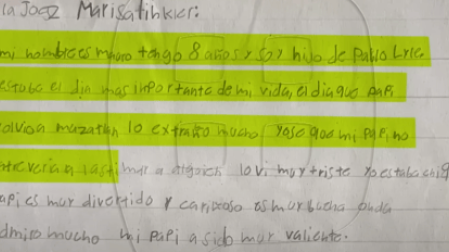 la Joez Marisatinkier:
mi nombre es mauro tengo 8 años y soy hijo de Pablo Lyle
estube el día mas importante de mi vida, el día que papi
olvioa mazatlan lo extraño mucho yo se que mi papi no
atreveria a lastimar a alguien lo vi muy triste yo estaba chiq
api es muy divertido y cariñoso es muy buena onda
dmiro mucho mi papi a sido muy valiente.